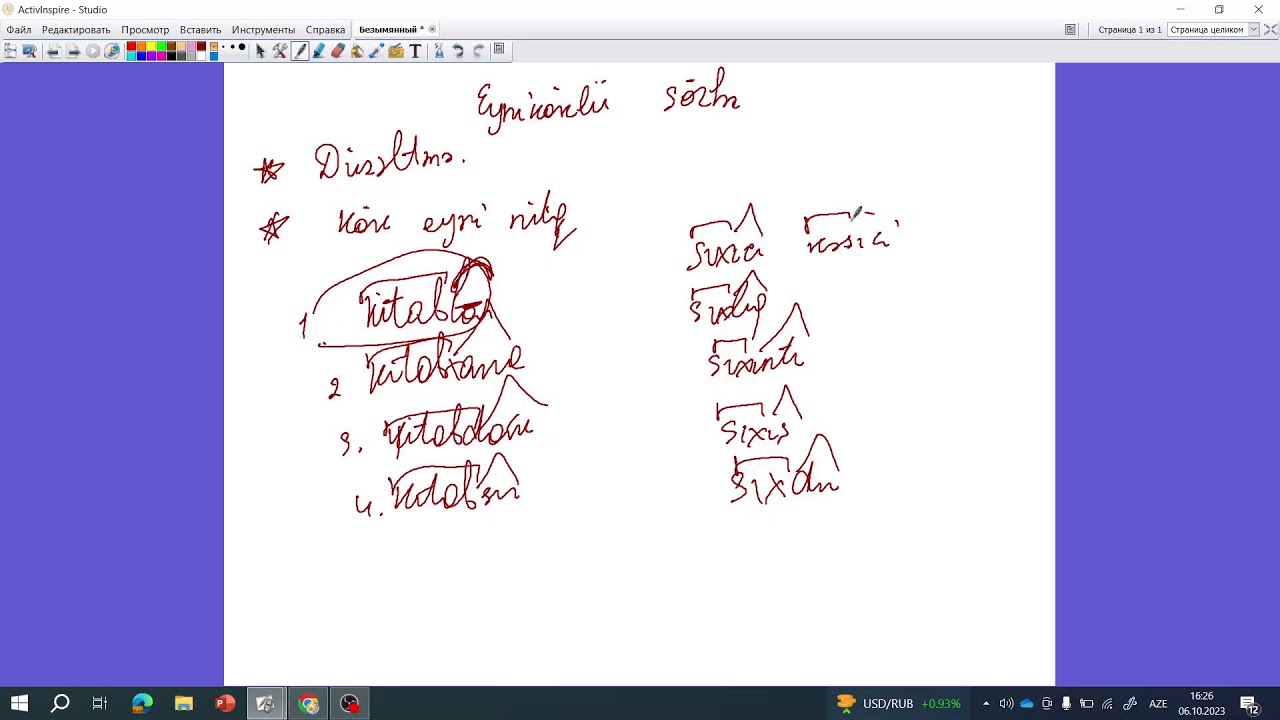 ActivInspire - Studio
Файл Редактировать Просмотр Вставить Инструменты Справка Безымянный * Страница 1 из 1 Страница целиком
T
Eyniköklü sözlər
Düzəltmə.
Kök eyni nitq
sıxıcı kəsici
1 kitablar
sıxlıq
2 kitabxana
sıxıntı
3. kitabdan
sıxış
4. kitabsız
sıxdın
USD/RUB +0.93% AZE 16:26
06.10.2023 12